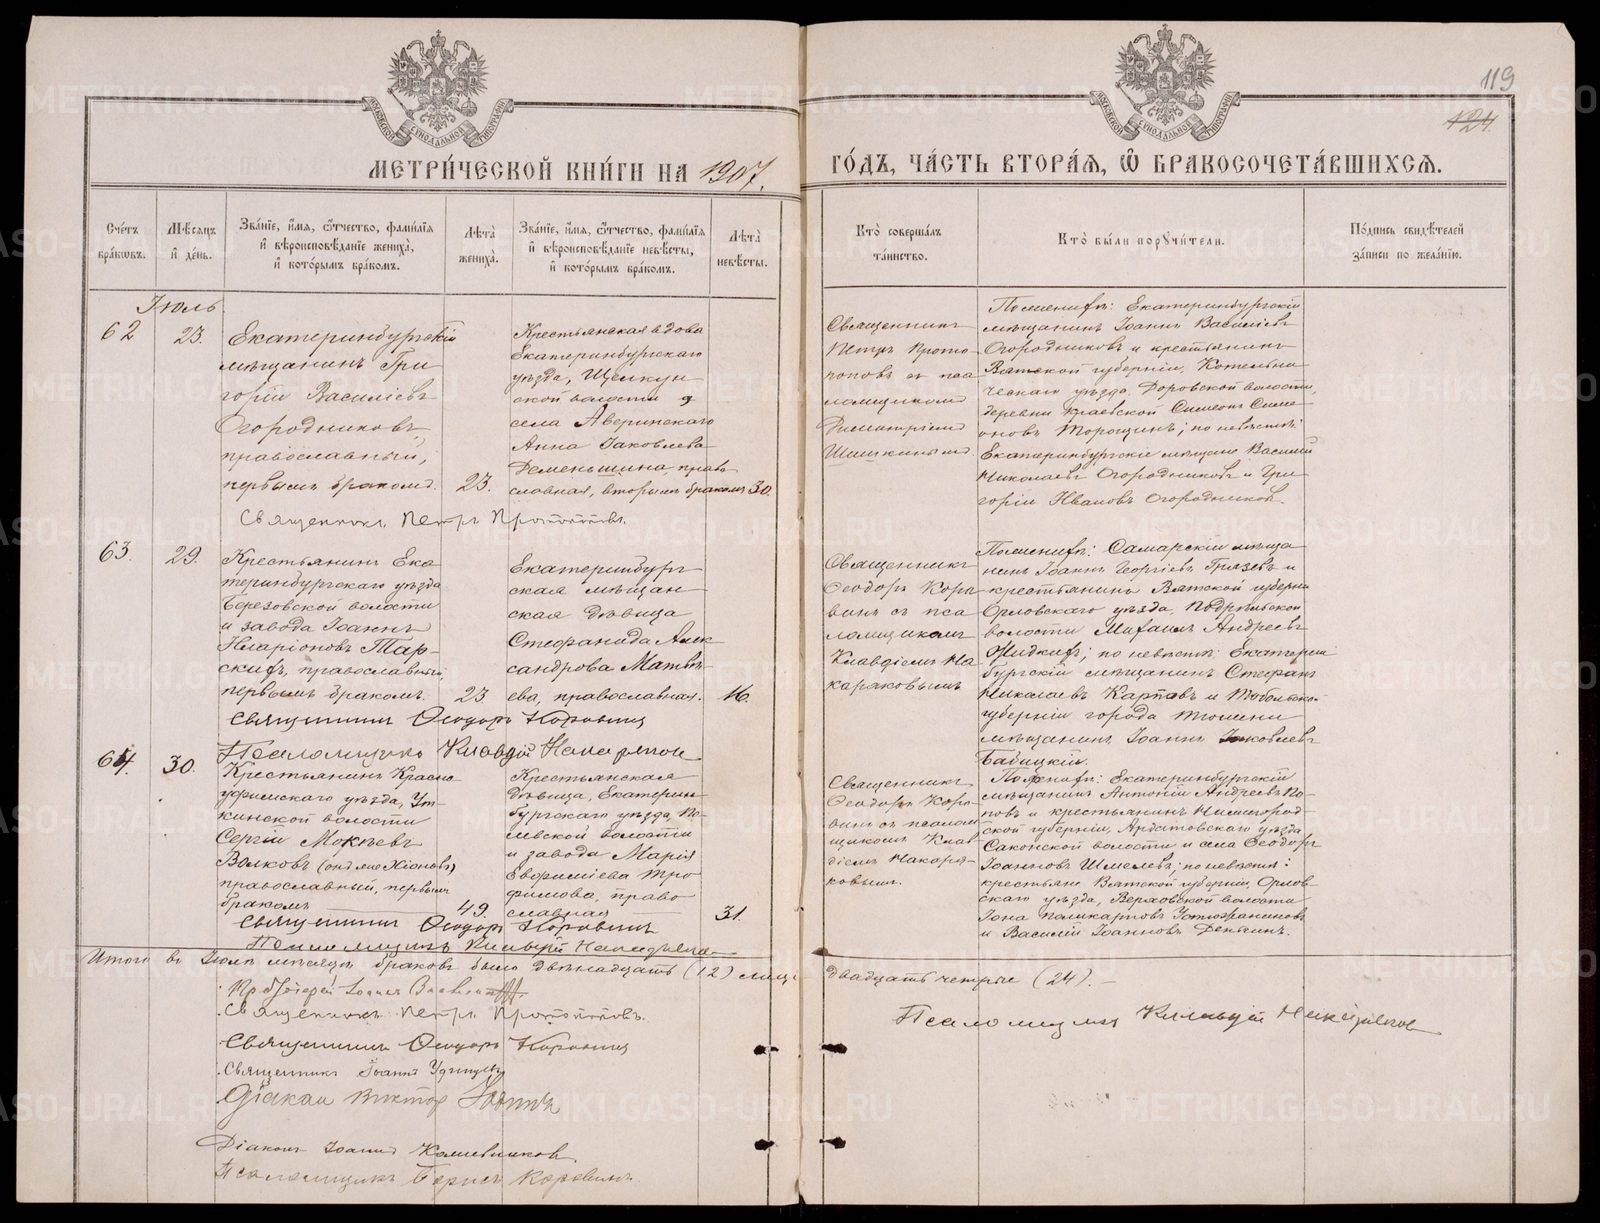 119
124
МЕТРИ́ЧЕСКОЙ КНИ́ГИ НА 1907.
ГО́ДЪ, ЧА́СТЬ ВТОРА́Я, Ѽ БРАКОСОЧЕТА́ВШИХСѦ.
Сче́тъ
бра́ковъ.
Мѣ́сяцъ
и҆ де́нь.
Зва́нїе, и҆́мя, ѻ҆́тчество, фами́лїя
и҆ вѣроисповѣ́данїе жениха̀,
и҆ кото́рымъ бра́комъ.
Лѣта̀
жениха̀.
Зва́нїе, и҆́мя, ѻ҆́тчество, фами́лїя
и҆ вѣроисповѣ́данїе невѣ́сты,
и҆ кото́рымъ бра́комъ.
Лѣта̀
невѣ́сты.
Кто̀ соверша́лъ
та́инство.
Кто̀ бы́ли порꙋчи́тели.
По́дпись свидѣ́телей
за́писи по жела́нїю.
Іюль
62
23.
Екатеринбургскій
мѣщанинъ Гри
горій Василіевъ
Огородниковъ,
православный,
первымъ бракомъ.
23.
Крестьянская вдова
Екатеринбургскаго
уѣзда, Щелкун
ской волости
села Аверинскаго
Анна Іаковлева
Деменьшина, право
славная, вторымъ бракомъ
30.
Священникъ
Петръ Прото
поповъ съ пса
ломщикомъ
Димитріемъ
Шишкинымъ.
По женихѣ: Екатеринбургскій
мѣщанинъ Іоаннъ Василіевъ
Огородниковъ и крестьянинъ
Вятской губерніи, Котельни
ческаго уѣзда, Доровской волости,
деревни Краевской Симеонъ Симе
оновъ Торощинъ; по невѣстѣ:
Екатеринбургскіе мѣщане Василій
Николаевъ Огородниковъ и Гри
горій Ивановъ Огородниковъ.
Священникъ Петръ Протопоповъ.
63.
29.
Крестьянинъ Ека
теринбургскаго уѣзда
Березовской волости
и завода Іоаннъ
Иларіоновъ Тар-
скихъ, православный,
первымъ бракомъ.
23
Екатеринбург
ская мѣщан
ская дѣвица
Стефанида Алек
сандрова Матвѣ
ева, православная.
16.
Священникъ
Ѳеодоръ Коро
винъ съ пса
ломщикомъ
Клавдіемъ На
каряковымъ
По женихѣ: Самарскій мѣща
нинъ Іоаннъ Георгіевъ Грязевъ и
крестьянинъ Вятской губерніи
Орловскаго уѣзда, Подрѣльской
волости Михаилъ Андреевъ
Жидкихъ; по невѣстѣ: Екатерин
бургскій мѣщанинъ Стефанъ
Николаевъ Карповъ и Тобольской
губерніи города Тюмени
мѣщанинъ Іоаннъ Іаковлевъ
Бабицкій.
Священникъ Ѳеодоръ Коровинъ
Псаломщикъ Клавдій Накаряков
64.
30.
Крестьянинъ Красно
уфимскаго уѣзда, Ут-
кинской волости
Сергій Мокіевъ
Волковъ (онъ же Хіоновъ)
православный, первымъ
бракомъ
49.
Крестьянская
дѣвица, Екатерин-
бургскаго уѣзда, По-
левской волости
и завода Марія
Евфиміева Тро
фимова, право
славная
31.
Священникъ
Ѳеодоръ Коро-
винъ съ псалом
щикомъ Клав
діемъ Накаря-
ковым.
По женихѣ: Екатеринбургскій
мѣщанинъ Антоній Андреевъ По-
повъ и крестьянинъ Нижегород-
ской губерніи, Ардатовскаго уѣзда
Саконской волости и села Ѳеодоръ
Іоанновъ Шмелевъ; по невѣстѣ:
крестьяне Вятской губерніи, Орлов-
скаго уѣзда, Верховской волости
Іона Поликарповъ Устюжаниновъ
и Василій Іоанновъ Деньгинъ.
Священникъ Ѳеодоръ Коровинъ
Псаломщикъ Клавдій Накаряков
Итого въ Іюлѣ мѣсяцѣ браковъ было двѣнадцать (12) лицъ
двадцать четыре (24). —
Протоіерей Іоаннъ
Священникъ Петръ Протопоповъ.
Священникъ Ѳеодоръ Коровинъ
Священникъ Іоаннъ Удинцевъ
Діакон Виктор
Діаконъ Іоаннъ
Псаломщикъ Борисъ Коровинъ.
Псаломщикъ Клавдій Накаряков